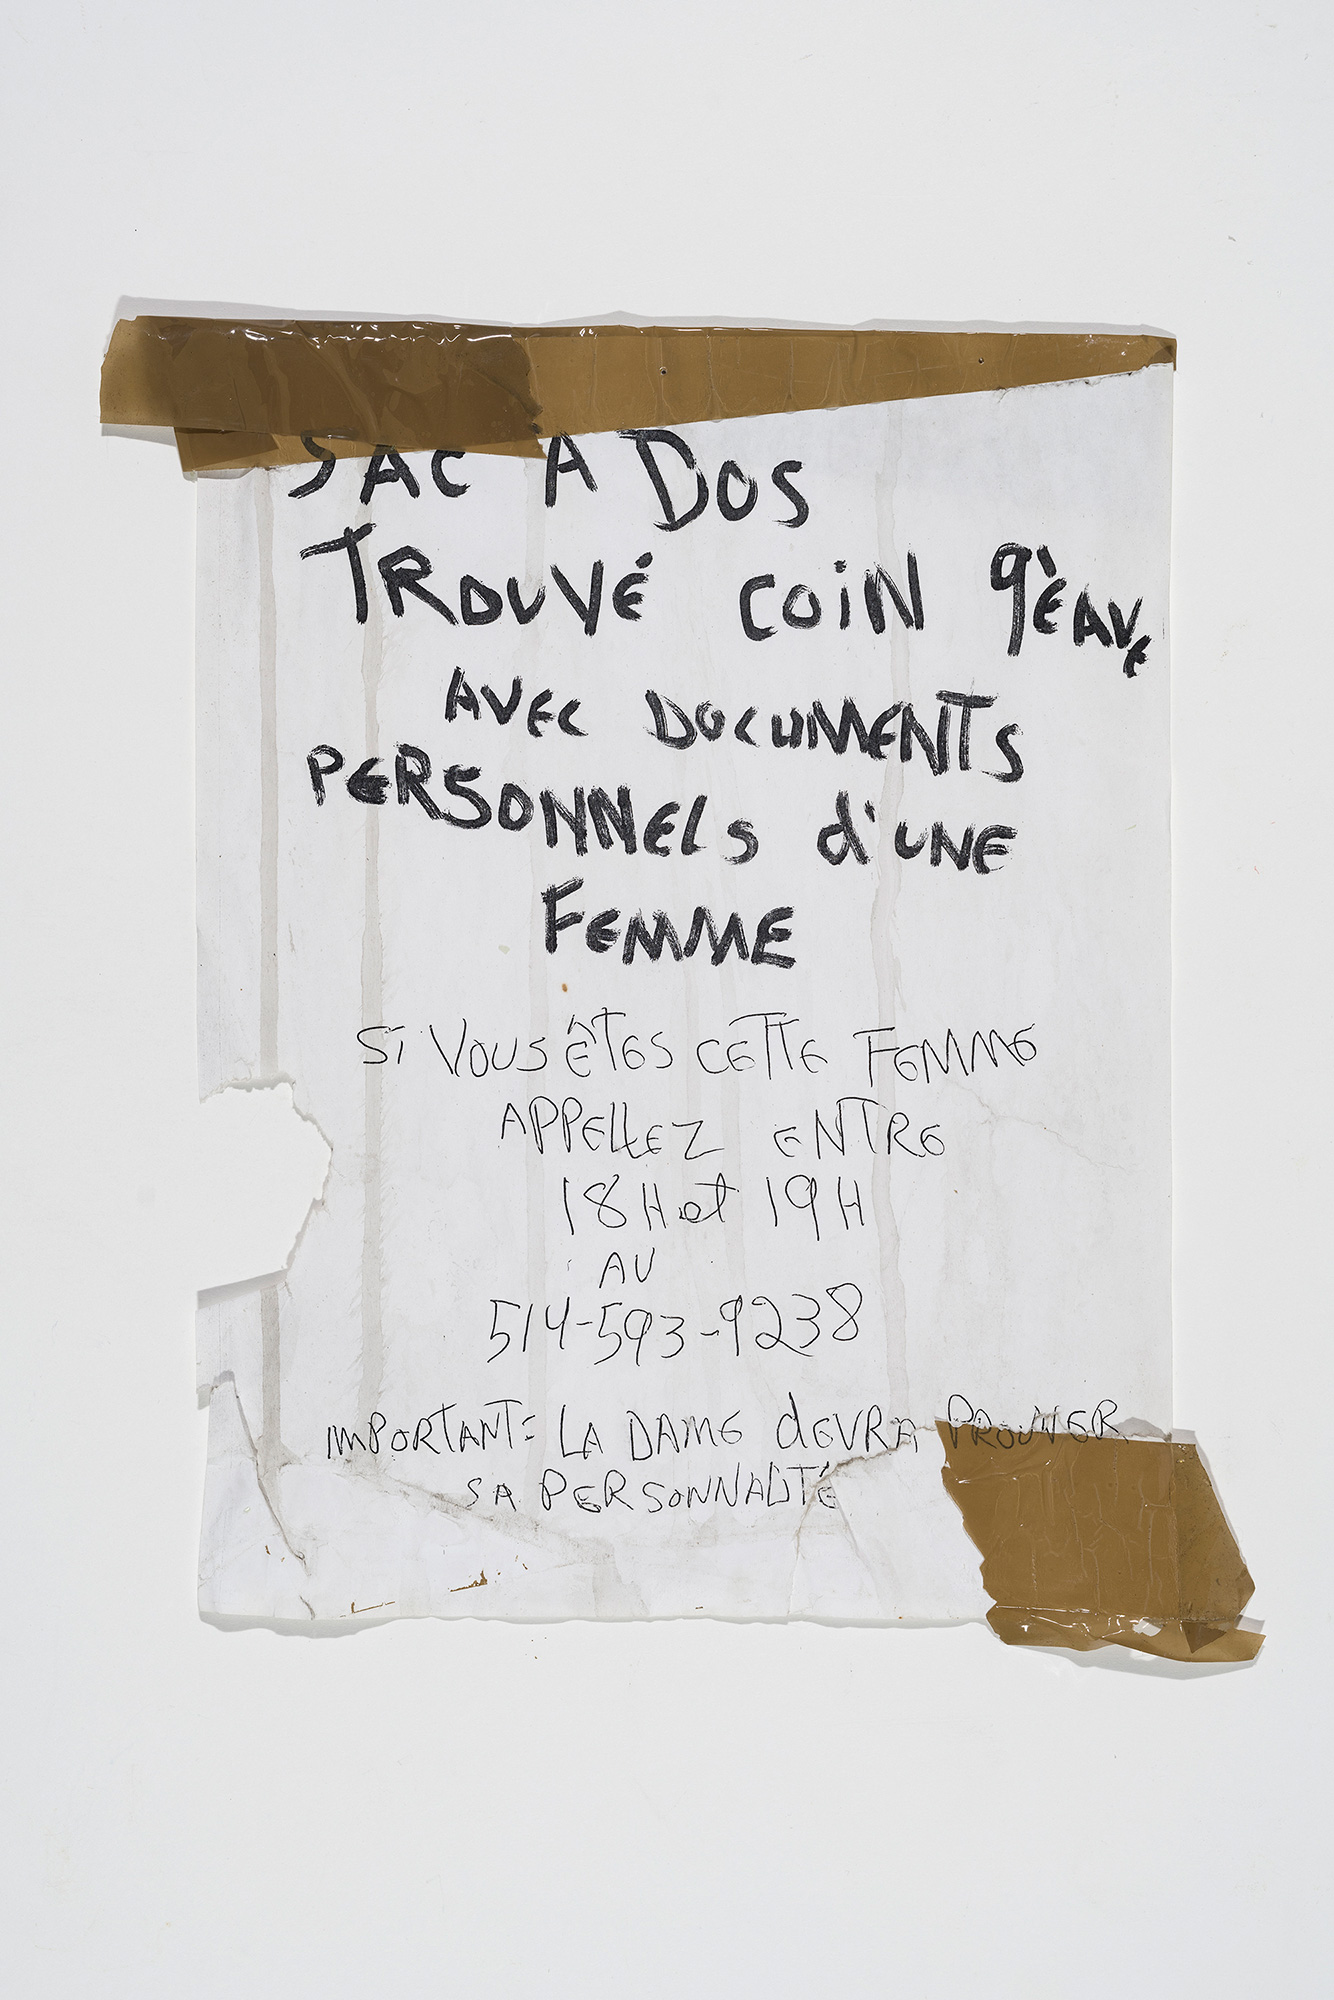 SAC A DOS
TROUVÉ COIN 9ÈAVE
AVEC DOCUMENTS
PERSONNELS d'UNE
FEMME
Si VOUS ÊTES CETTE FEMME
APPELLEZ ENTRE
18H et 19H
AU
514-593-9238
IMPORTANT: LA DAME dEVRA PROUVER
SA PERSONNALITÉ